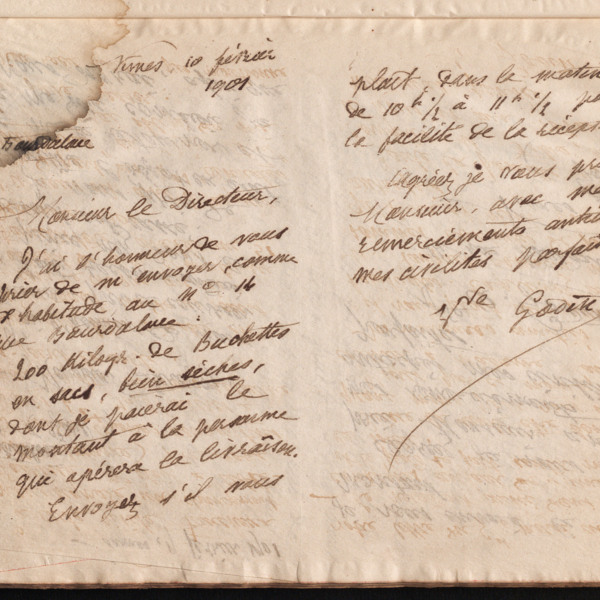 10 février
1901
Bourdaloue
Monsieur le Directeur,
J'ai l'honneur de vous
prier de m'envoyer, comme
d'habitude au N° 16
rue Bourdaloue :
200 Kilogr. de Buchettes
en sacs, bien sèches,
dont je paierai le
montant à la personne
qui opérera la livraison.
Envoyez s'il vous
plait, dans la matin
de 10 h ½ à 11 h ½ po
la facilité de la récept
Agréez, je vous pr
Monsieur, avec me
remerciements anti
mes civilités parfait
Godin